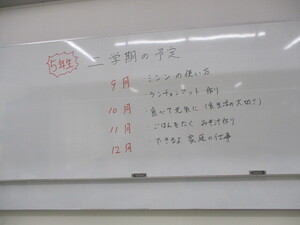 5年生 二学期の予定
9月 ・ミシンの使い方
・ランチョンマット作り
10月 ・食べて元気に(食生活の大切さ)
11月 ・ごはんをたく みそ汁作り
12月 ・できるよ家庭の仕事